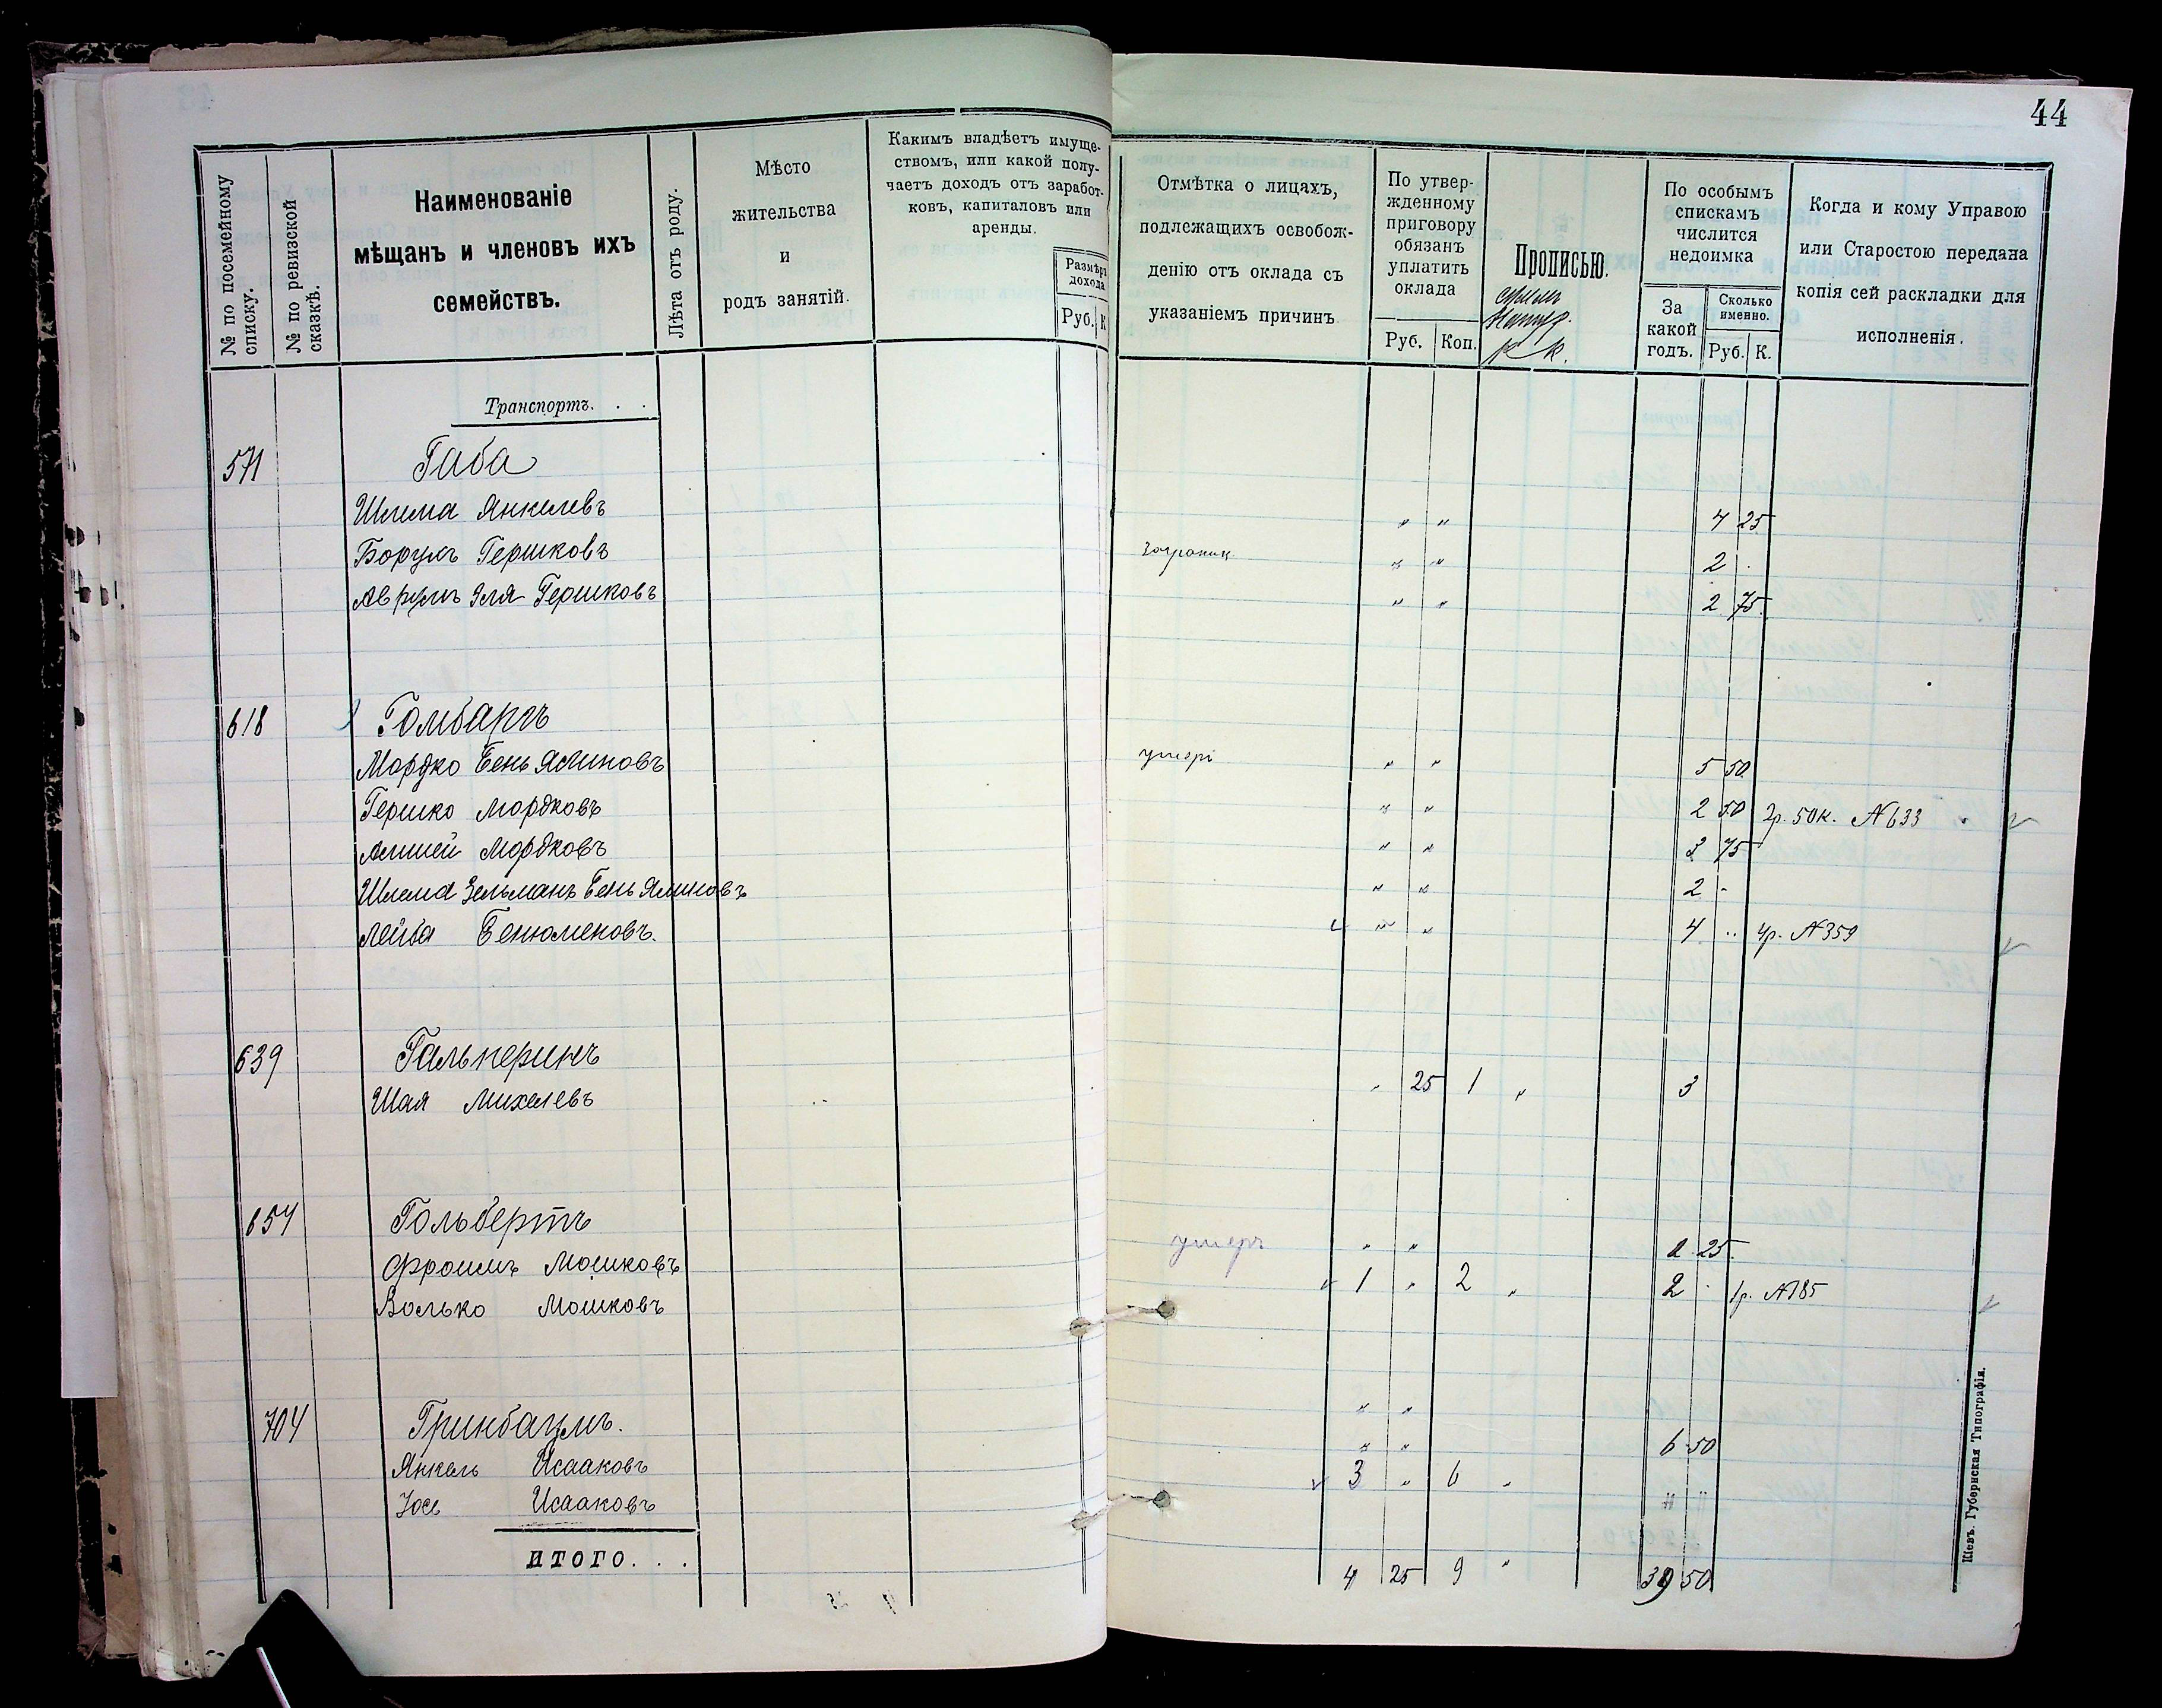 44
№ по посемейному списку.
№ по ревизской сказкѣ.
Наименованіе
мѣщанъ и членовъ ихъ
семействъ.
Лѣта отъ роду.
Мѣсто
жительства
и
родъ занятій.
Какимъ владѣетъ имуще-
ствомъ, или какой полу-
чаетъ доходъ отъ заработ-
ковъ, капиталовъ или
аренды.
Размѣръ
дохода
Руб. К
Отмѣтка о лицахъ,
подлежащихъ освобож-
денію отъ оклада съ
указаніемъ причинъ
По утвер-
жденному
приговору
обязанъ
уплатить
оклада
Руб. Коп.
Прописью.
р к.
По особымъ
спискамъ
числится
недоимка
За
какой
годъ.
Сколько
именно.
Руб. К.
Когда и кому Управою
или Старостою передана
копія сей раскладки для
исполненія.
Транспортъ. . .
571 Габа
Шлема Янкелевъ " " 4 25
Борухъ Гершковъ " " 2 .
Аврумъ Эля Гершковъ " " 2 75
618 Гомбаргъ
Мордко Беньяминовъ умеръ " " 5 50
Гершко Мордковъ " " 2 50 2р. 50к. №633
Мордковъ " " 3 75
Шлема Зельманъ Беньяминовъ " " 2 -
Лейба Бенюменовъ. " " 4 .. 4р. №359
639 Гальперинъ
Шая Михелевъ " 25 1 " 3
654 Гольбертъ
Фроимъ Мошковъ умеръ " " 2 25.
Волько Мошковъ 1 " 2 " 2 . 1р. №185
704 Гринбаумъ. " "
Янкель Исааковъ " " 6 50
Юсь Исааковъ 3 " 6 " " "
ИТОГО. . . 4 25 9 " 39 50
Кіевъ. Губернская Типографія.